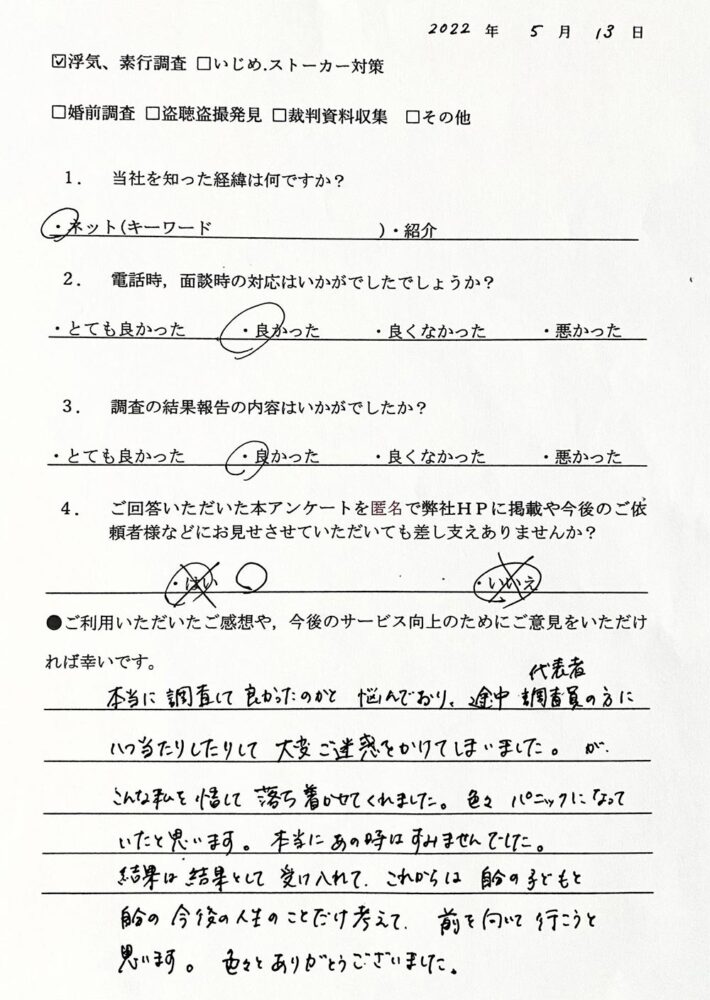 2022 年 5 月 13 日
☑浮気、素行調査 □いじめ.ストーカー対策
□婚前調査 □盗聴盗撮発見 □裁判資料収集 □その他
1. 当社を知った経緯は何ですか？
・ネット(キーワード )・紹介
2. 電話時，面談時の対応はいかがでしたでしょうか？
・とても良かった ・良かった ・良くなかった ・悪かった
3. 調査の結果報告の内容はいかがでしたか？
・とても良かった ・良かった ・良くなかった ・悪かった
4. ご回答いただいた本アンケートを匿名で弊社ＨＰに掲載や今後のご依
頼者様などにお見せさせていただいても差し支えありませんか？
・はい ・いいえ
●ご利用いただいたご感想や，今後のサービス向上のためにご意見をいただけ
れば幸いです。
代表者
本当に調査して良かったのかと悩んでおり、途中調査員の方に
八つ当たりしたりして大変ご迷惑をかけてしまいました。が、
こんな私を落ち着かせてくれました。色々パニックになって
いたと思います。本当にあの時はすみませんでした。
結果は結果として受け入れて、これからは自分の子どもと
自分の今後の人生のことだけ考えて、前を向いて行こうと
思います。色々とありがとうございました。